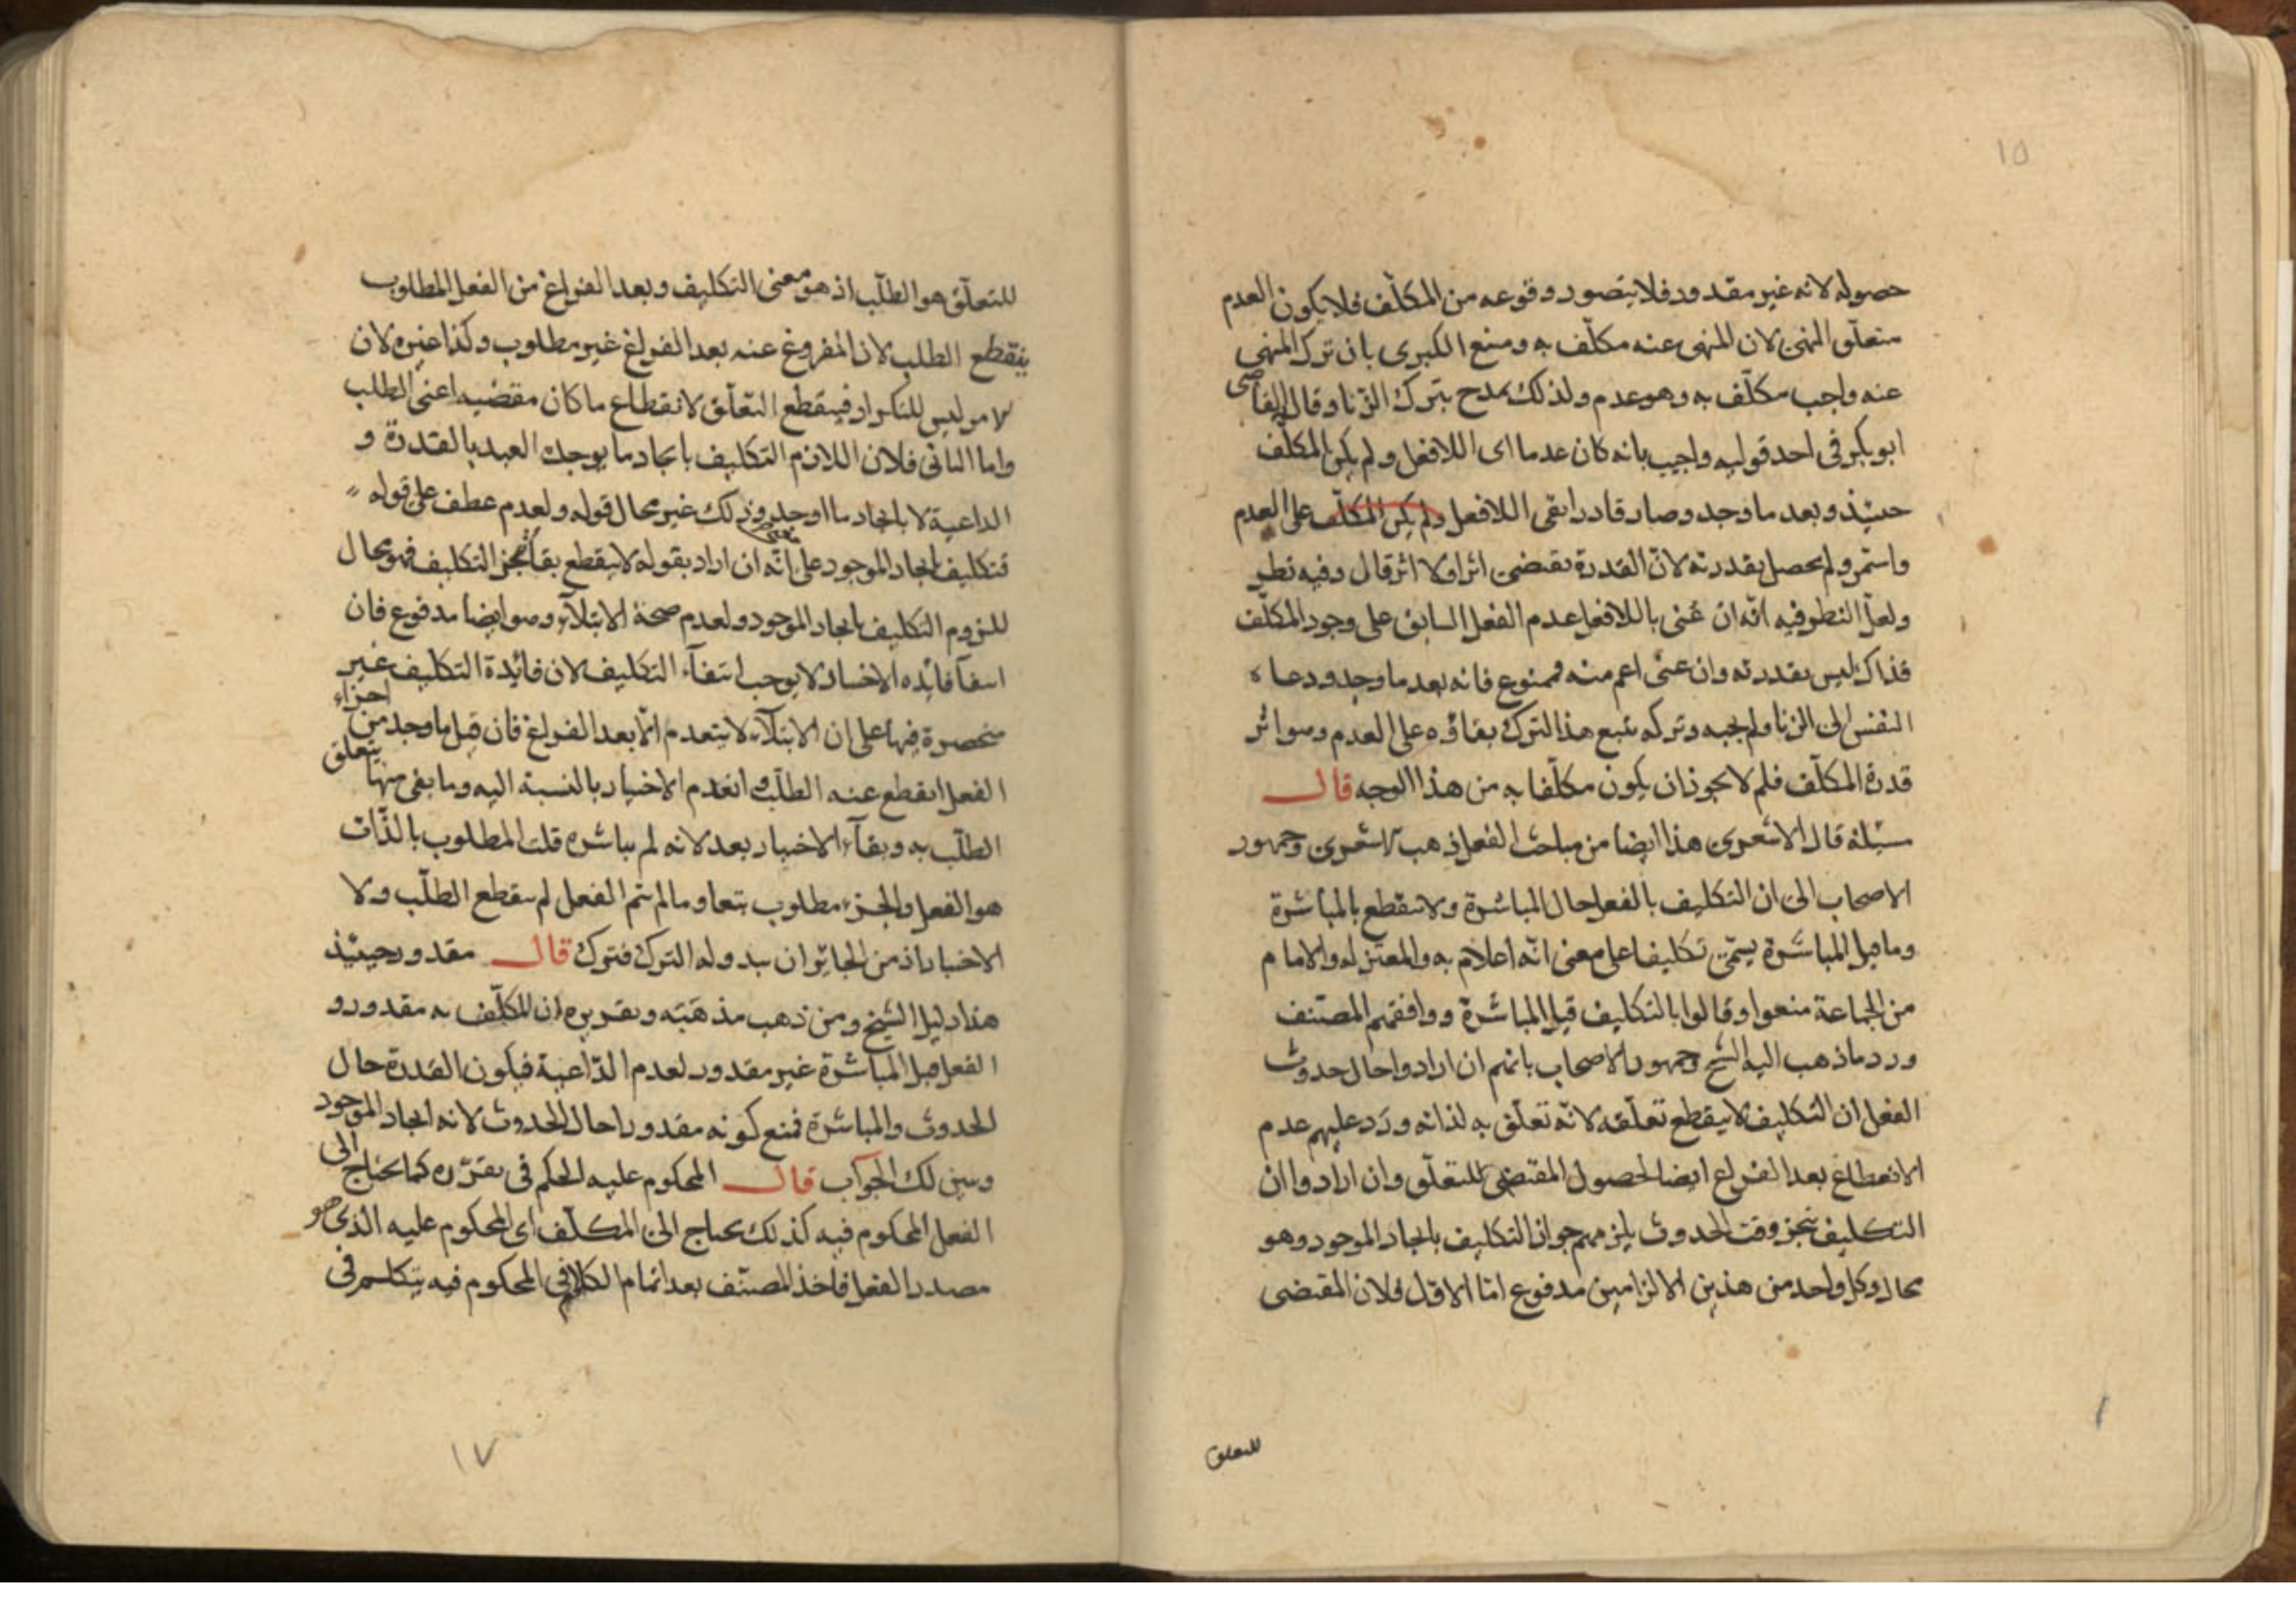 ١٥
حصوله لانه غير مقدور فلا يتصور وقوعه من المكلّف فلا يكون العدم
متعلّق النهى لان المنهى عنه مكلّف به ومنع الكبرى بان ترك المنهى
عنه واجب مكلّف به وهو عدم ولذلك يمدح بترك الزنا وقال القاضى
ابوبكر فى احد قوليه واجيب بانه كان عدما اى اللافعل ولم يكن المكلّف
حينئذ وبعد ما وجد وصار قادرا بقى اللافعل ولم يكن المكلّف على العدم
واستمر ولم يحصل بقدرته لانّ القدرة تقتضى اثرا ولا اثر قال وفيه نظر
ولعلّ النظر فيه انّه ان عنى باللافعل عدم الفعل السابق على وجود المكلّف
فذاك ليس بقدرته وان عنى اعم منه فممنوع فانه بعد ما وجد ودعاه
النفس الى الزنا ولم يجبه وتركه تبع هذا الترك بقاؤه على العدم وهو اثر
قدرة المكلّف فلم لا يجوز ان يكون مكلّفا به من هذا الوجه قال
مسئلة قال الاشعرى هذا ايضا من مباحث الفعل ذهب الاشعرى وجمهور
الاصحاب الى ان التكليف بالفعل حال المباشرة ولا ينقطع بالمباشرة
وما قبل المباشرة يسمّى تكليفا على معنى انّه اعلام به والمعتزله والامام
من الجماعة منعوا وقالوا بالتكليف قبل المباشرة ووافقهم المصنف
ورد ما ذهب اليه الشيخ وجمهور الاصحاب بانهم ان ارادوا حال حدوث
الفعل ان التكليف لا ينقطع تعلّقه لانّه تعلّق به لذاته ورد عليهم عدم
الانقطاع بعد الفراغ ايضا لحصول المقتضى للتعلّق وان ارادوا ان
التكليف تنجز وقت الحدوث يلزمهم جواز التكليف بايجاد الموجود وهو
محال وكل واحد من هذين الالزامين مدفوع امّا الاوّل فلان المقتضى
للتعلق
للتعلّق هو الطلّب اذ هو معنى التكليف وبعد الفراغ من الفعل المطلوب
ينقطع الطلب لان المفروغ عنه بعد الفراغ غير مطلوب وكذا غيره لان
الامر ليس للتكرار فينقطع التعلّق لانقطاع ما كان مقتضيه اعنى الطلب
واما الثانى فلان اللازم التكليف بايجاد ما يوجده العبد بالقدرة و
الداعية لا بايجاد ما اوجد وذلك غير محال قوله ولعدم عطف على قوله
فتكليف بايجاد الموجود على انّه ان اراد بقوله لا ينقطع بقاء تنجز التكليف فهو محال
للزوم التكليف بايجاد الموجود ولعدم صحة الابتلاء وهو ايضا مدفوع فان
انتفاء فائده الاختبار لا يوجب انتفاء التكليف لان فائدة التكليف غير
منحصرة فيها على ان الابتلاء لا ينعدم الّا بعد الفراغ فان قيل ما وجد من اجزاء
الفعل انقطع عنه الطلّب وانعدم الاختبار بالنسبة اليه وما بقى منها يتعلق
الطلّب به وبقاء الاختبار بعد لانه لم يباشره قلت المطلوب بالذّات
هو الفعل والجزء مطلوب تبعا وما لم يتم الفعل لم ينقطع الطلّب ولا
الاختبار اذ من الجائز ان يبدو له الترك فترك قال مقدور حينئذ
هذا دليل الشيخ ومن ذهب مذهبه وتقريره ان المكلّف به مقدور و
الفعل قبل المباشرة غير مقدور لعدم الدّاعية فيكون القدرة حال
الحدوث والمباشرة فمنع كونه مقدورا حال الحدوث لانه ايجاد الموجود
وسبق لك الجواب قال المحكوم عليه الحكم فى تقرّره كما يحتاج الى
الفعل المحكوم فيه كذلك يحتاج الى المكلّف اى المحكوم عليه الذى هو
مصدر الفعل فاخذ المصنّف بعد اتمام الكلام فى المحكوم فيه يتكلم فى
١٧